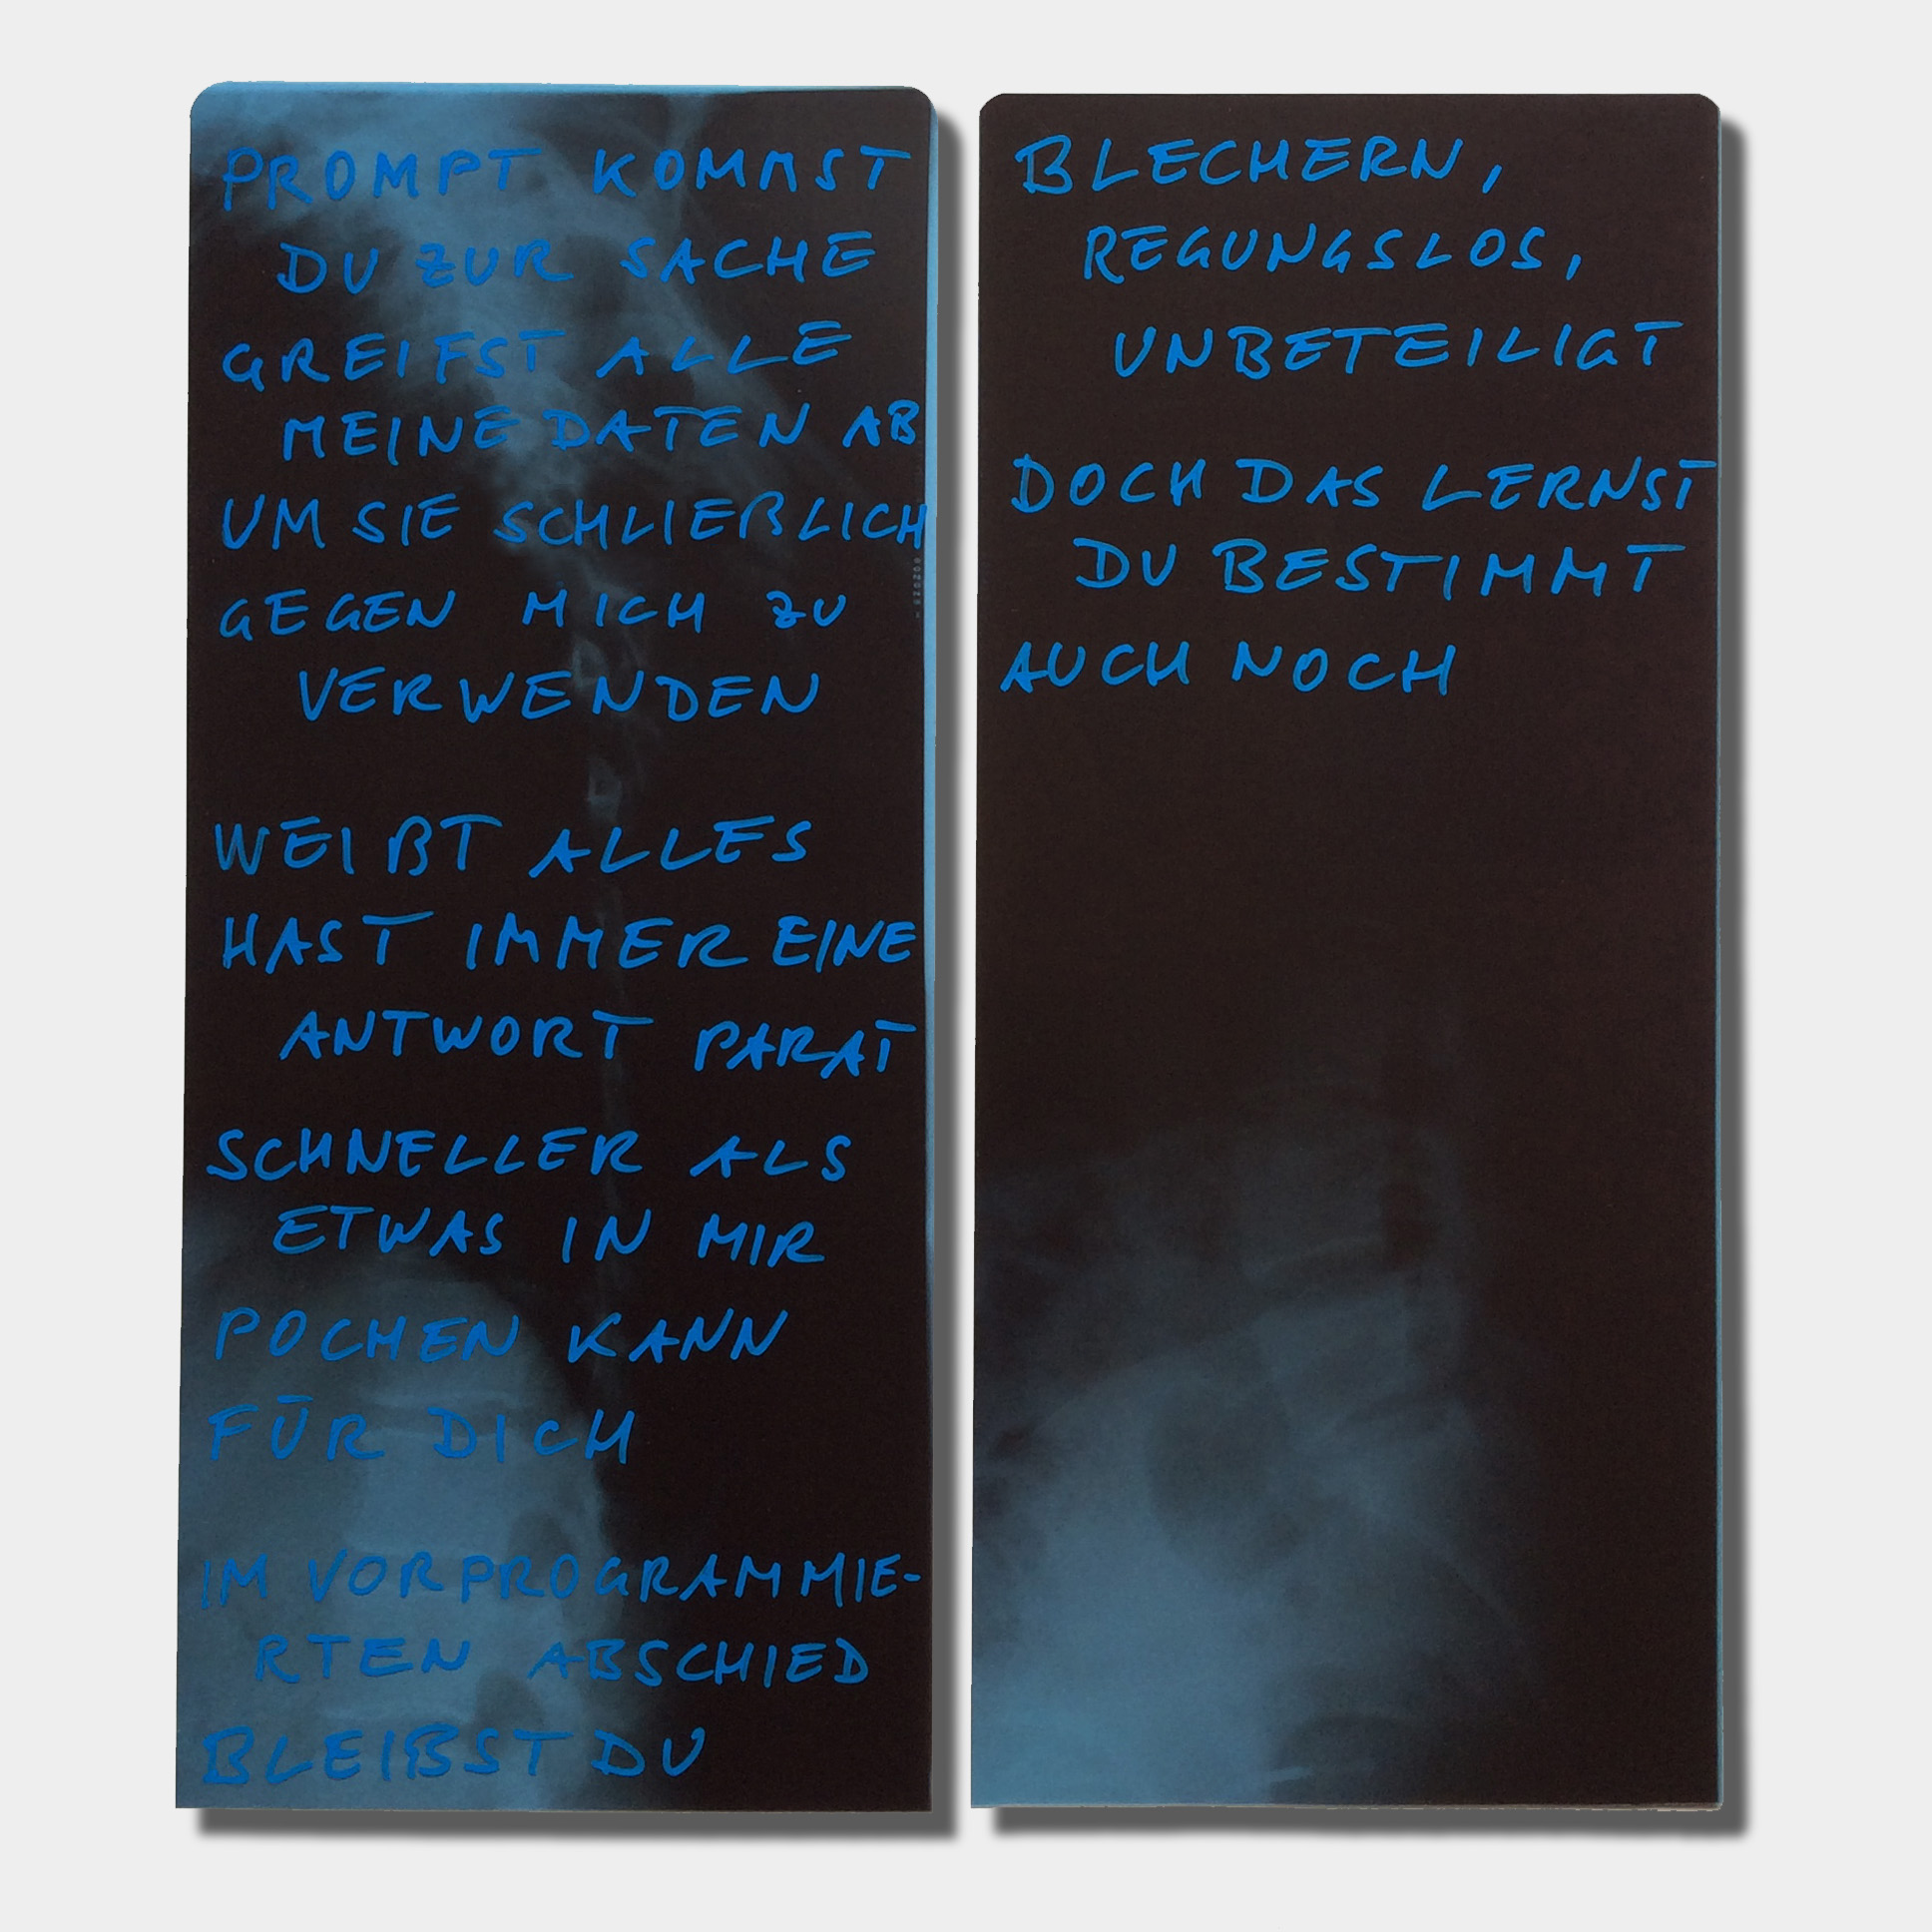 PROMPT KOMMST
DU ZUR SACHE
GREIFST ALLE
MEINE DATEN AB
UM SIE SCHLIEẞLICH
GEGEN MICH ZU
VERWENDEN
WEIẞT ALLES
HAST IMMER EINE
ANTWORT PARAT
SCHNELLER ALS
ETWAS IN MIR
POCHEN KANN
FÜR DICH
IM VORPROGRAMMIE-
RTEN ABSCHIED
BLEIBST DU
BLECHERN,
REGUNGSLOS,
UNBETEILIGT
DOCH DAS LERNST
DU BESTIMMT
AUCH NOCH